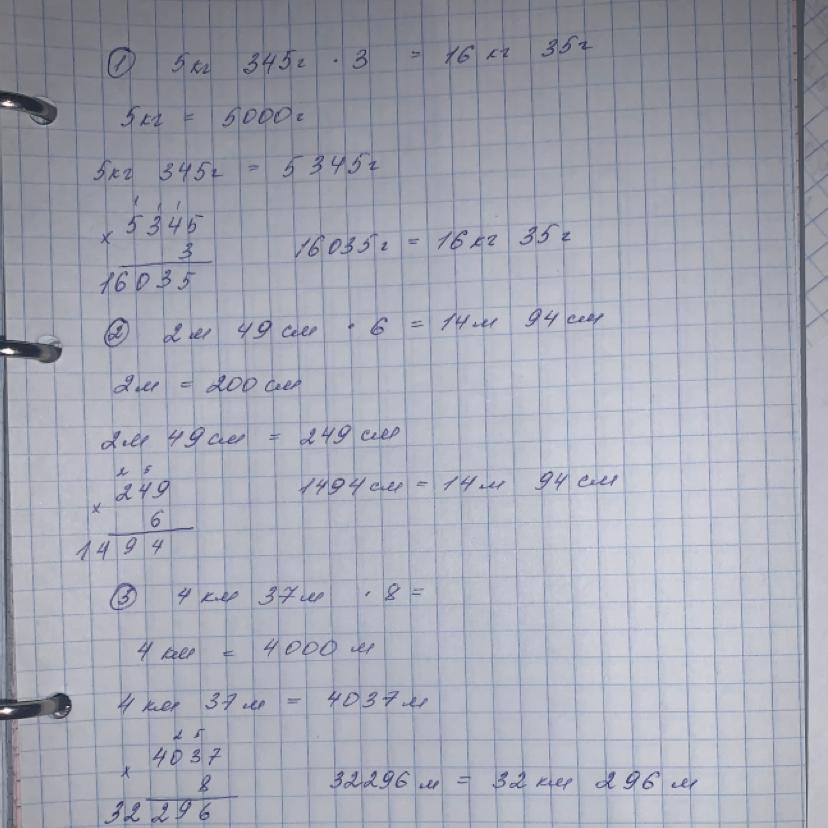 ① 5кг 345г · 3 = 16 кг 35г
5кг = 5000г
5кг 345г = 5345г
1 1 1
× 5345
3
16035
16035г = 16кг 35г
② 2м 49см · 6 = 14м 94см
2м = 200см
2м 49см = 249см
2 5
× 249
6
1494
1494см = 14м 94см
③ 4 км 37м · 8 =
4 км = 4000 м
4 км 37м = 4037м
2 5
× 4037
8
32296
32296м = 32 км 296 м